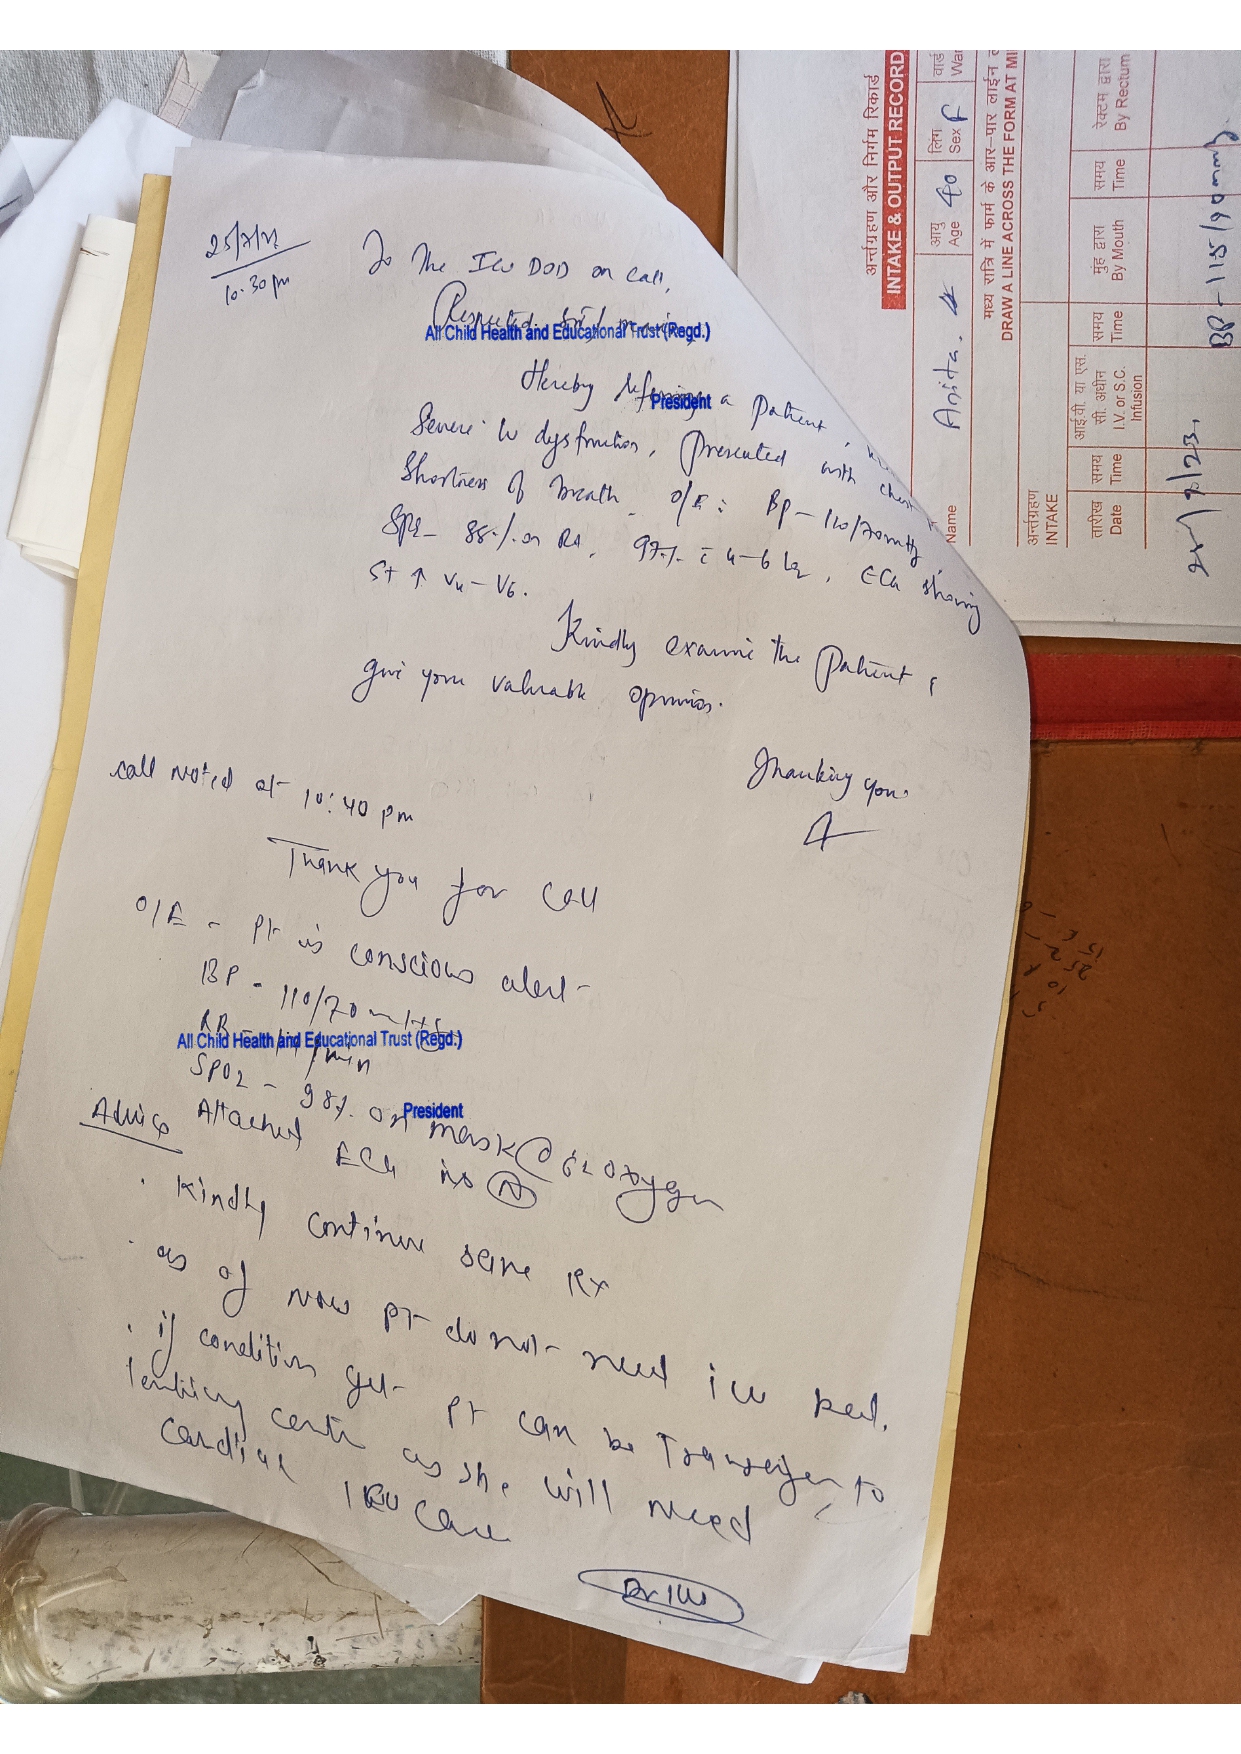 10:30 pm
To The ICU DOD on call,
Respected
All Child Health and Educational Trust (Regd.)
Hereby referring a patient,
President
Severe LV dysfunction, Presented with chest
Shortness of breath. O/E: BP - 110/70mmHg,
SpO2 - 88% on RA, 97% c 4-6 L, ECG showing
ST ↑ V4 - V6.
Kindly examine the patient &
give your valuable opinion.
Thanking you.
call noted at 10:40 pm
Thank you for call
O/E - pt is conscious alert
BP - 110/70 mmHg
RR - /min
All Child Health and Educational Trust (Regd.)
SPO2 - 98% on mask @ 6L oxygen
President
Advice Attached ECG is (N)
. Kindly continue same Rx
. as of now pt do not need icu bed.
. if condition get pt can be Transfer to
tertiary centre as she will need
cardiac ICU care
Dr ICU
अर्न्तग्रहण और निर्गम रिकार्ड
INTAKE & OUTPUT RECORD
Name Anita. आयु Age 40 लिंग Sex F वार्ड
मध्य रात्रि में फार्म के आर-पार लाईन
DRAW A LINE ACROSS THE FORM AT
अर्न्तग्रहण
INTAKE
तारीख Date
समय Time
आई.वी. या एस. सी. अधीन I.V. or S.C. Infusion
समय Time
मुंह द्वारा By Mouth
समय Time
रेक्टम द्वारा By Rectum
BP - 115/90 mmHg